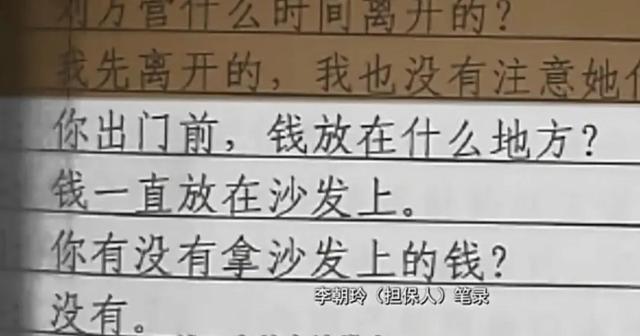 刘方管什么时间离开的？
我先离开的，我也没有注意她
你出门前，钱放在什么地方？
钱一直放在沙发上。
你有没有拿沙发上的钱？
李朝玲（担保人）笔录
没有。